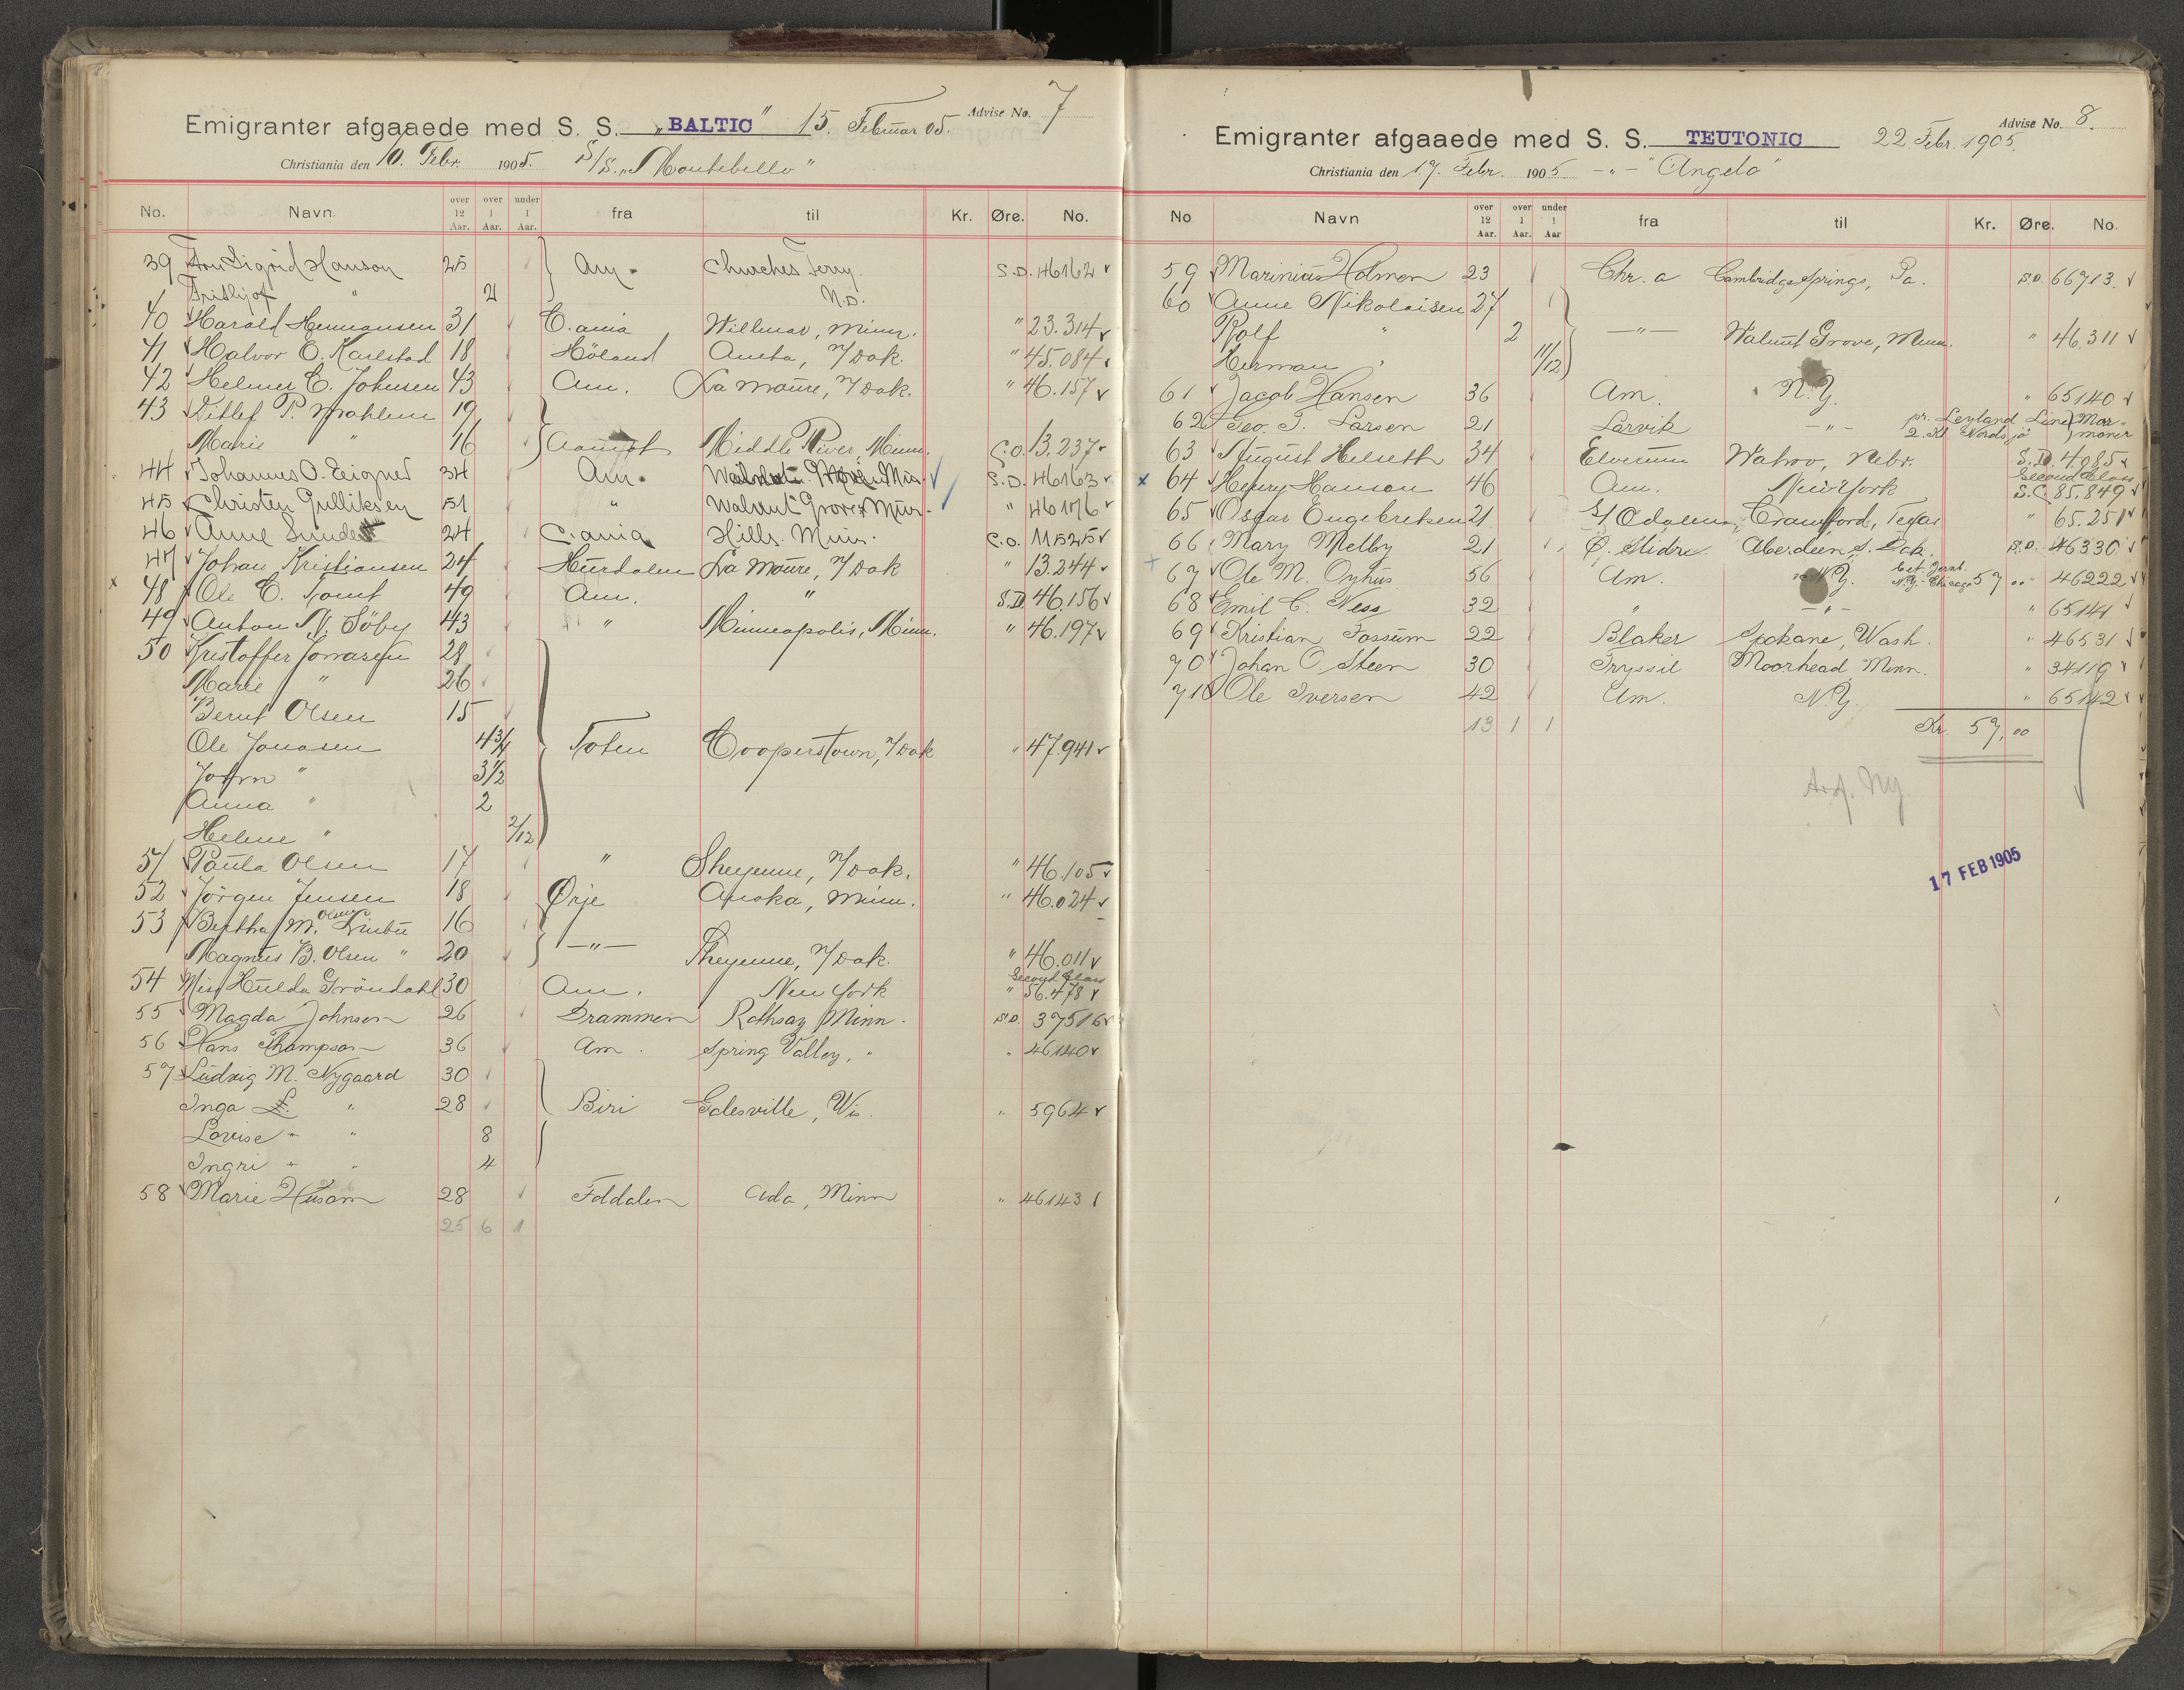 Emigranter afgaaede med S. S. „BALTIC" 15. Februar 05. Advise No. 7
Christiania den 10. Febr. 1905. S/S. „Montebello"
No. Navn. over 12 Aar. over 1 Aar. under 1 Aar. fra til Kr. Øre. No.
39 Fru Sigrid Hanson 25 Am. Churches Ferry S.D. 46162
Frithjof " 2 N.D.
40 Harald Hermansen 31 C.ania Willmar, Minn. " 23.314
41 Halvor O. Karlstad 18 Høland Aneta, N/Dak. " 45.084
42 Helmer C. Johnsen 43 Am. La Moure, N/Dak. " 46.157
43 Ditlef P. 19
Marie " 16 Middle River, Minn. C.O. 13.237
44 Johannes O. Eignes 34 Am. S.D. 46163
45 Christen Gulliksen 51 " Walnut Grove Minn. " 46176
46 Anne Sunde 24 C.ania Hills. Minn. C.O. 11525
47 Johan Kristiansen 24 Hurdalen La Moure, N/Dak " 13.244
x 48 Ole C. Tomt 49 Am. " S.D. 46.156
49 Anton N. Söby 43 " Minneapolis, Minn. " 46.197
50 Kristoffer Jonasen 28
Marie " 26
Bernt Olsen 15
Ole Jonasen 4 3/4 Toten Cooperstown, N/Dak " 47.941
John " 3 1/2
Anna " 2
Helene " 2/12
51 Paula Olsen 17 " Sheyenne, N/Dak. " 46.105
52 Jörgen Jensen 18 Ørje Anoka, Minn. " 46.024
53 Bertha M. Olsen 16
Magnus B. Olsen " 20 —"— Sheyenne, N/Dak. " 46.011
54 Miss Hulda Gröndahl 30 Am. New York Second Class " 56.478
55 Magda Johnson 26 Drammen Rothsay Minn. S.D. 37516
56 Hans Thompson 36 Am. Spring Valley, " " 46140
57 Ludvig M. Nygaard 30
Inga L. " 28 Biri Galesville, Wis. " 5964
Lovise " " 8
Ingri " " 4
58 Marie Husom 28 Foldalen Ada, Minn " 46143
25 6 1
Emigranter afgaaede med S. S. TEUTONIC 22 Febr. 1905. Advise No. 8.
Christiania den 17. Febr. 1905 —"— "Angelo"
No Navn over 12 Aar. over 1 Aar. under 1 Aar fra til Kr. Øre. No.
59 Marinius Holmen 23 Chr.a Cambridge Springs, Pa. S.D. 66713.
60 Anne Nikolaisen 27
Rolf " 2 —"— Walnut Grove, Minn. " 46.311
Herman " 11/12
61 Jacob Hansen 36 Am. N.Y. " 65140
62 Geo. T. Larsen 21 Larvik —"— pr. Leyland Line 2. Kl. Nordsjö Mormoner
63 August Helseth 34 Elverum Wahoo, Nebr. S.D. 4085
x 64 Henry Hansen 46 Am. New York Second Class S.C. 85.849
65 Oscar Engebretsen 21 S/Odalen, Crawford, Texas " 65.251
66 Mary Melby 21 Ø. Slidre Aberdeen S. Dak. S.D. 46330
+ 67 Ole M. Oyhus 56 Am. N.Y. N.Y.-Chicago 57 " 46222
68 Emil C. Ness 32 " —"— " 65141
69 Kristian Fossum 22 Blaker Spokane, Wash. " 46531
70 Johan O. Steen 30 Tryssil Moorhead Minn. " 34119
71 Ole Iversen 42 Am. N.Y. " 65142
13 1 1 Kr. 57,00
17 FEB 1905